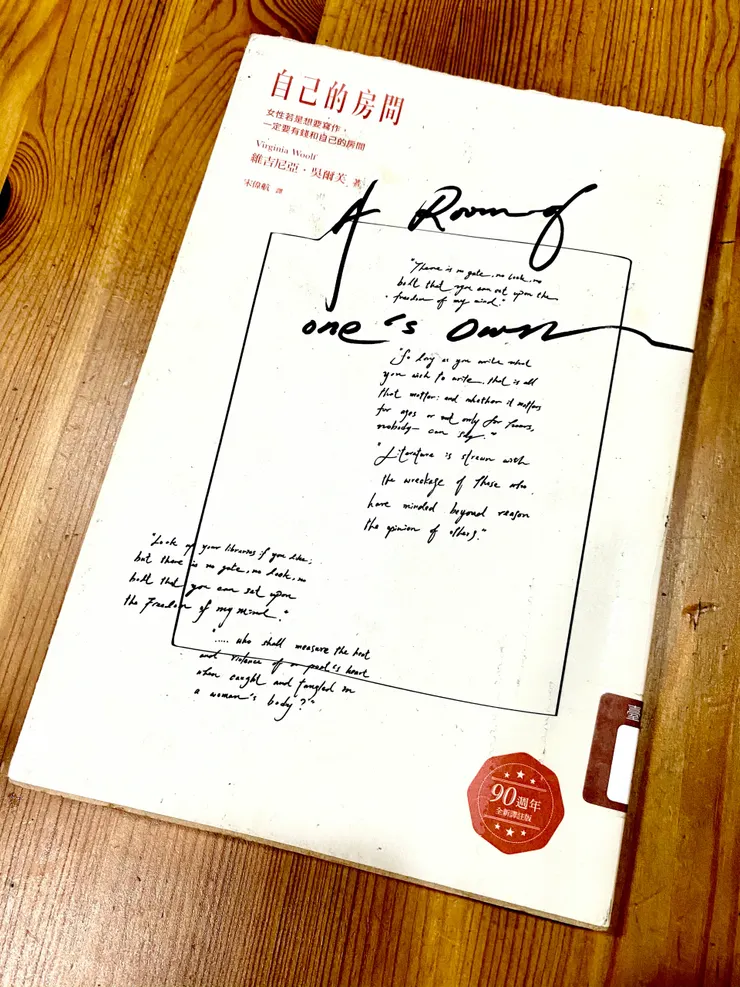 自己的房間
女性若是想要寫作，
一定要有錢和自己的房間
Virginia Woolf
維吉尼亞・吳爾芙 著
宋偉航 譯
A Room of
"There is no gate, no lock, no
bolt that you can set upon the
freedom of my mind."
one's own
"So long as you write what
you wish to write, that is all
that matters; and whether it matters
for ages or not only for hours,
nobody can say."
"Literature is strewn with
the wreckage of those who
have minded beyond reason
the opinion of others."
"Lock up your libraries if you like;
but there is no gate, no lock, no
bolt that you can set upon
the freedom of my mind."
"..... who shall measure the heat
and violence of a poet's heart
when caught and tangled in
a woman's body?"
臺
90週年
全新譯註版